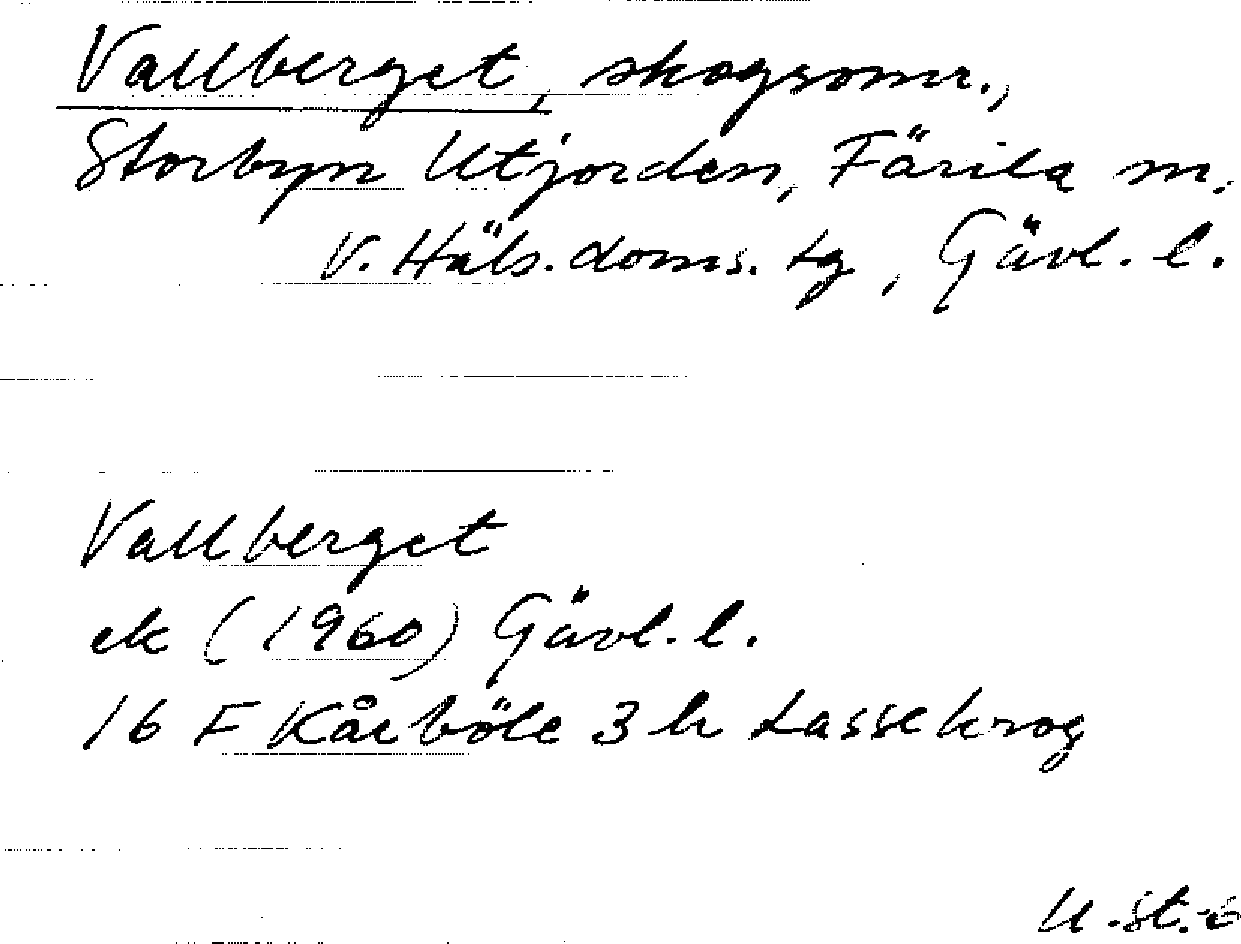 Vallberget, skogsomr.,
Storbyn Utjorden, Färila m.
V. Häls. doms. tg, Gävl. l.
Vallberget
ek (1960) Gävl. l.
16 F Kårböle 3 h Lassekrog
U. St.-